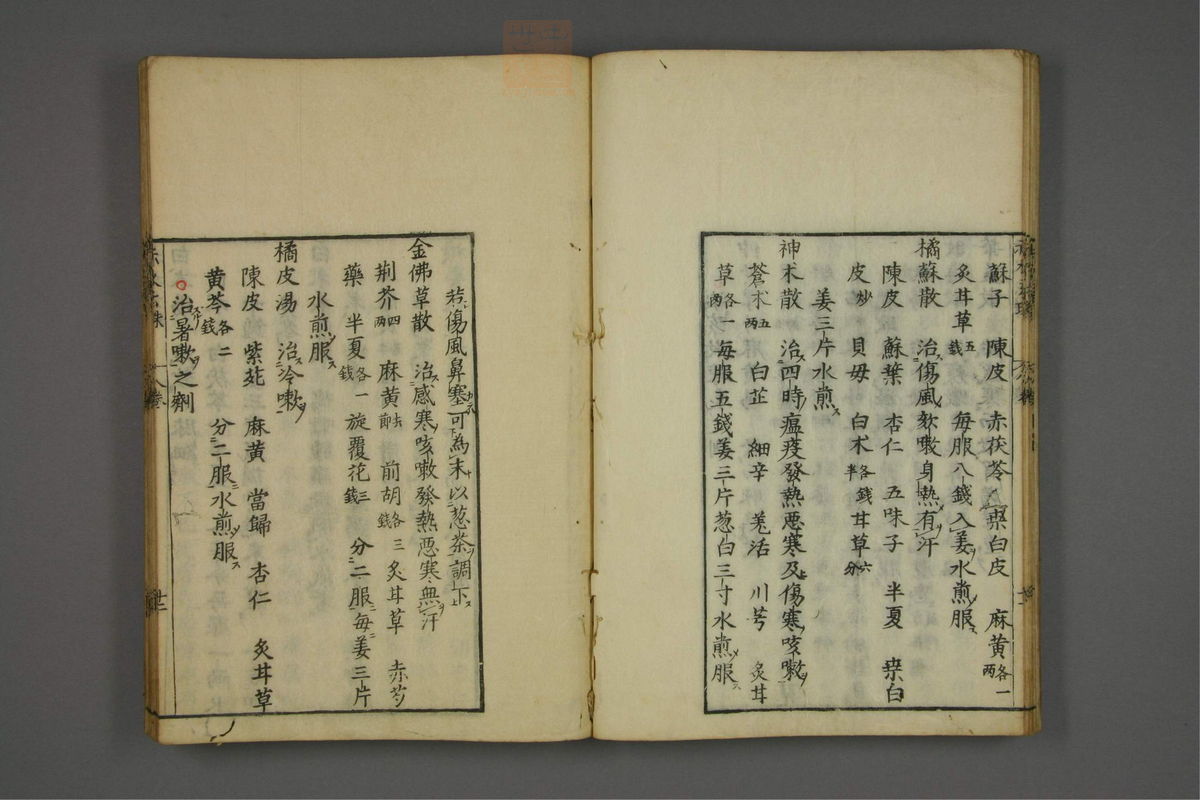 蘇子　陳皮　赤茯苓　桒白皮　麻黄各一兩
炙甘草五錢　毎服八錢入姜水煎服
橘蘇散　治傷風欬嗽身熱有汗
陳皮　蘇葉　杏仁　五味子　半夏　桒白
皮炒　貝母　白朮各錢半　甘草六分
姜三片水煎
神朮散　治四時瘟疫發熱悪寒及傷寒咳嗽
蒼朮五兩　白芷　細辛　羌活　川芎　炙甘
草各一兩　毎服五錢姜三片葱白三寸水煎服
若傷風鼻塞可為末以葱茶調下
金佛草散　治感寒咳嗽發熱悪寒無汗
荊芥四兩　麻黄去節　前胡各三錢　炙甘草　赤芍
藥　半夏各一錢　旋覆花三錢　分二服毎姜三片
水煎服
橘皮湯　治冷嗽
陳皮　紫苑　麻黄　當歸　杏仁　炙甘草
黄芩各二錢　分二服水煎服
治暑嗽之劑